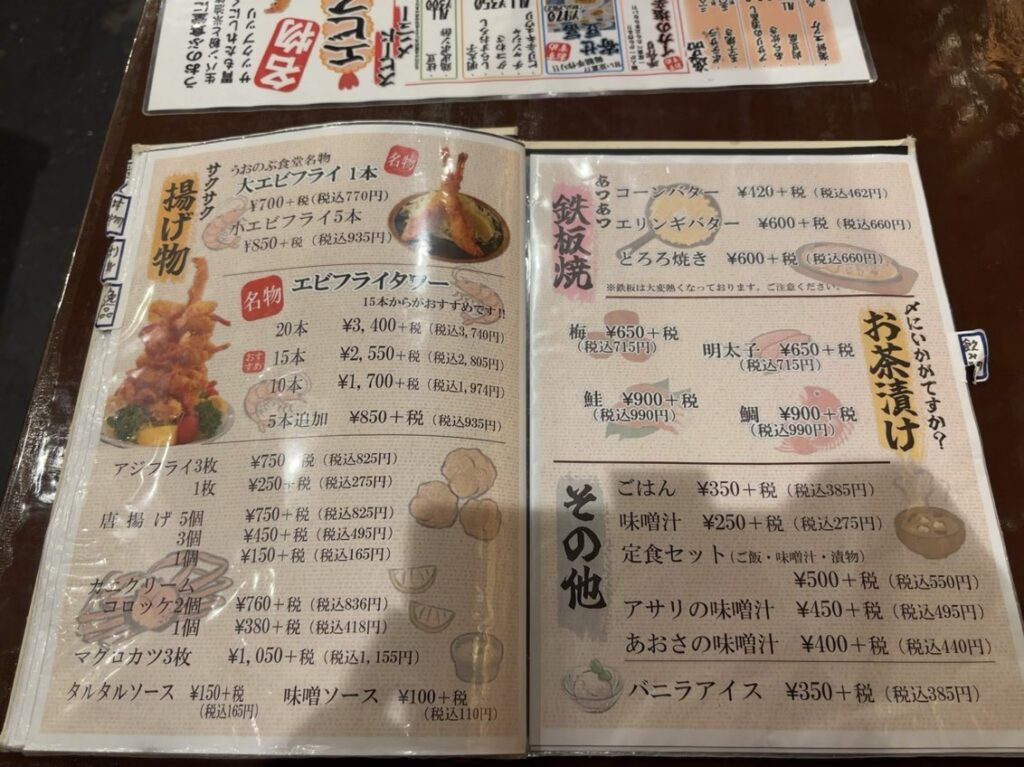 名物
エビフ
スピード
メニュー
枝豆
揚げ物
サクサク
うおのぶ食堂名物
大エビフライ 1本
名物
¥700+税(税込770円)
小エビフライ5本
¥850+税(税込935円)
名物
エビフライタワー
15本からがおすすめです!!
20本 ¥3,400+税(税込3,740円)
おすすめ
15本 ¥2,550+税(税込2,805円)
10本 ¥1,700+税(税込1,974円)
5本追加 ¥850+税(税込935円)
アジフライ3枚 ¥750+税(税込825円)
1枚 ¥250+税(税込275円)
唐揚げ 5個 ¥750+税(税込825円)
3個 ¥450+税(税込495円)
1個 ¥150+税(税込165円)
カニクリーム
コロッケ2個 ¥760+税(税込836円)
1個 ¥380+税(税込418円)
マグロカツ3枚 ¥1,050+税(税込1,155円)
タルタルソース ¥150+税
(税込165円)
味噌ソース ¥100+税
(税込110円)
鉄板焼
あつあつ
コーンバター ¥420+税(税込462円)
エリンギバター ¥600+税(税込660円)
とろろ焼き ¥600+税(税込660円)
※鉄板は大変熱くなっております。ご注意ください。
〆にいかがですか?
お茶漬け
梅 ¥650+税
(税込715円)
明太子 ¥650+税
(税込715円)
鮭 ¥900+税
(税込990円)
鯛 ¥900+税
(税込990円)
その他
ごはん ¥350+税(税込385円)
味噌汁 ¥250+税(税込275円)
定食セット(ご飯・味噌汁・漬物)
¥500+税(税込550円)
アサリの味噌汁 ¥450+税(税込495円)
あおさの味噌汁 ¥400+税(税込440円)
バニラアイス ¥350+税(税込385円)